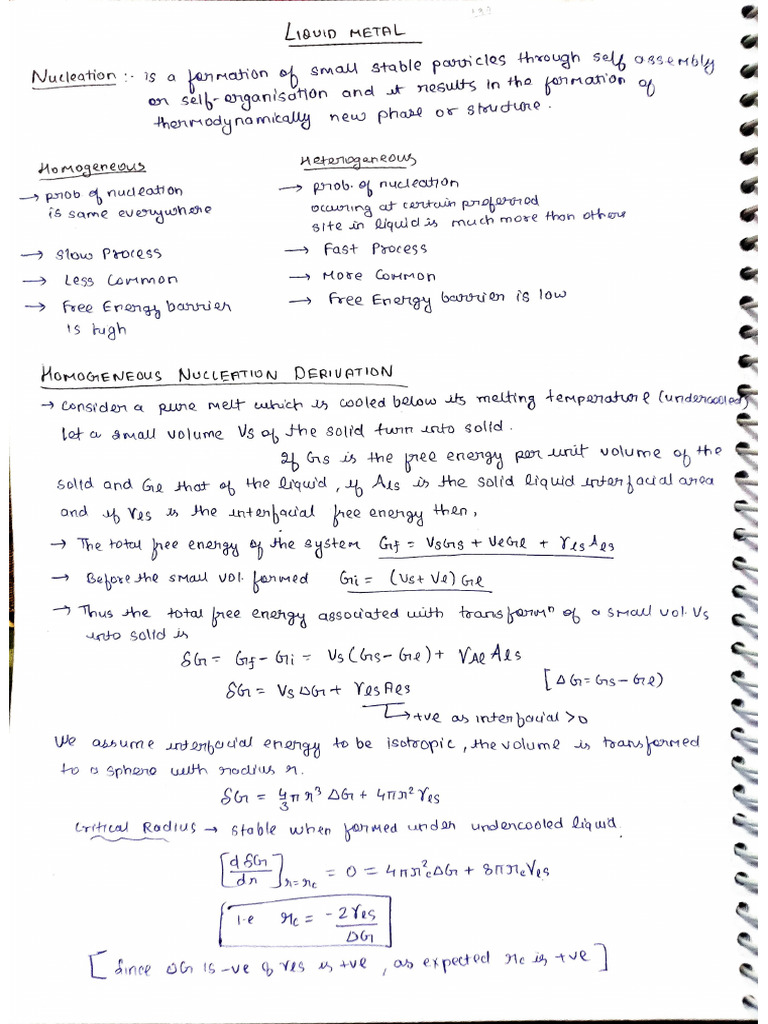 LIQUID METAL
Nucleation :- is a formation of small stable particles through self assembly
or self-organisation and it results in the formation of
thermodynamically new phase or structure.
Homogeneous
→ prob of nucleation
is same everywhere
→ Slow Process
→ Less Common
→ Free Energy barrier
is high
Heterogeneous
→ prob. of nucleation
occuring at certain preferred
site in liquid is much more than others
→ Fast Process
→ More Common
→ Free Energy barrier is low
HOMOGENEOUS NUCLEATION DERIVATION
→ Consider a pure melt which is cooled below its melting temperature (undercooled)
Let a small volume Vs of the solid turn into solid.
If Gs is the free energy per unit volume of the
solid and Gl that of the liquid, if Als is the solid liquid interfacial area
and if γls is the interfacial free energy then,
→ The total free energy of the system Gf = VsGs + VlGl + γlsAls
→ Before the small vol. formed Gi = (Vs + Vl) Gl
→ Thus the total free energy associated with transformⁿ of a small vol. Vs
into solid is
δG = Gf - Gi = Vs (Gs - Gl) + γAl Als
δG = Vs ΔG + γlsAls [ΔG = Gs - Gl)
↳ +ve as interfacial > 0
We assume interfacial energy to be isotropic, the volume is transformed
to a sphere with radius r.
δG = 4/3 π r³ ΔG + 4πr² γls
Critical Radius → stable when formed under undercooled liquid.
[d δG / dr] r=rc = 0 = 4πrc²ΔG + 8πrcγls
i.e rc = -2γls / ΔG
[Since ΔG is -ve & γls is +ve, as expected rc is +ve]